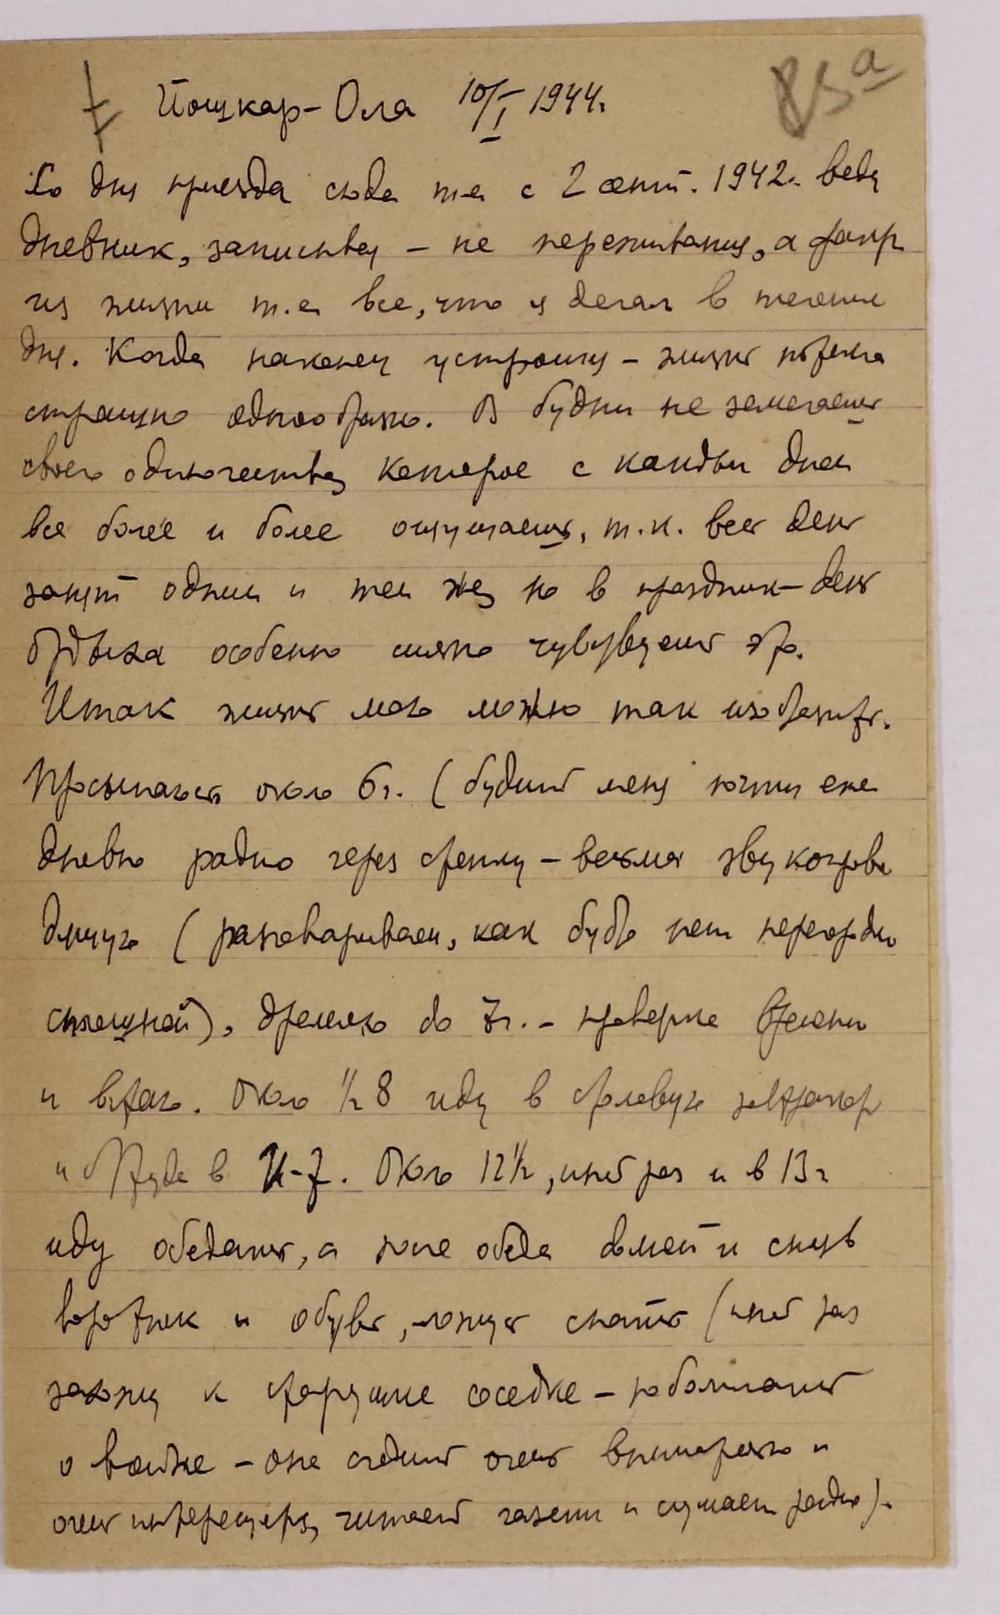 83а
Йошкар-Ола 10/I 1944г.
Со дня приезда сюда т.е. с 2 сент. 1942г. веду
дневник, записываю – не переживания, а факты
из жизни т.е. все, что я делал в течении
дня. Когда наконец устроился – жизнь потекла
страшно однообразно. В будни не замечаешь
своего одиночества, которое с каждым днем
все более и более ощущаешь, т.к. весь день
занят одним и тем же, но в праздник – день
отдыха особенно сильно чувствуешь это.
Итак жизнь мою можно так изобразить.
Просыпаюсь около 6г. (будит меня почти еже
дневно радио через стенку – весьма звукопрово
дящую (разговариваем, как будто нет перегородки
сплошной), дремлю до 7г. – проверка времени
и встаю. Около 1/2 8 иду в столовую завтракать
и оттуда в И-т. Около 12 1/2, иной раз и в 13г
иду обедать, а после обеда домой и сняв
воротник и обувь, ложусь спать (иной раз
захожу к старушке соседке – поболтать
о войне – она следит очень внимательно и
очень интересуется, читает газеты и слушает радио).